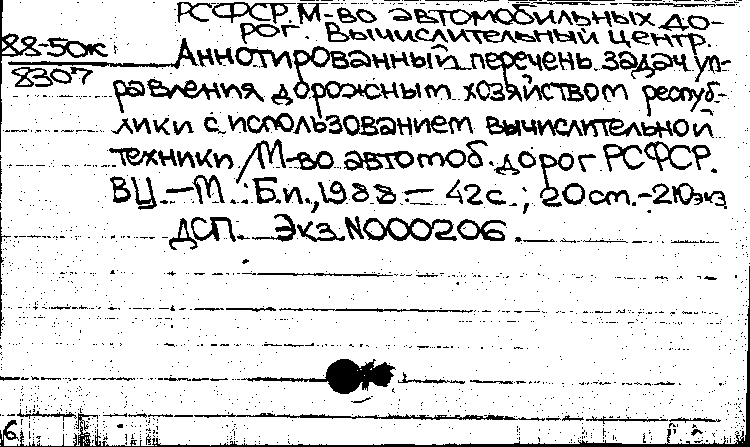 РСФСР. М-во автомобильных до-
рог. Вычислительный центр.
88-50к
8307
Аннотированный перечень задач уп-
равления дорожным хозяйством респуб-
лики с использованием вычислительной
техники / М-во автомоб. дорог РСФСР.
ВЦ. — М. : Б.и., 1988 — 42с. ; 20 ст. — 210 экз
ДСП. Экз. N000206.
6